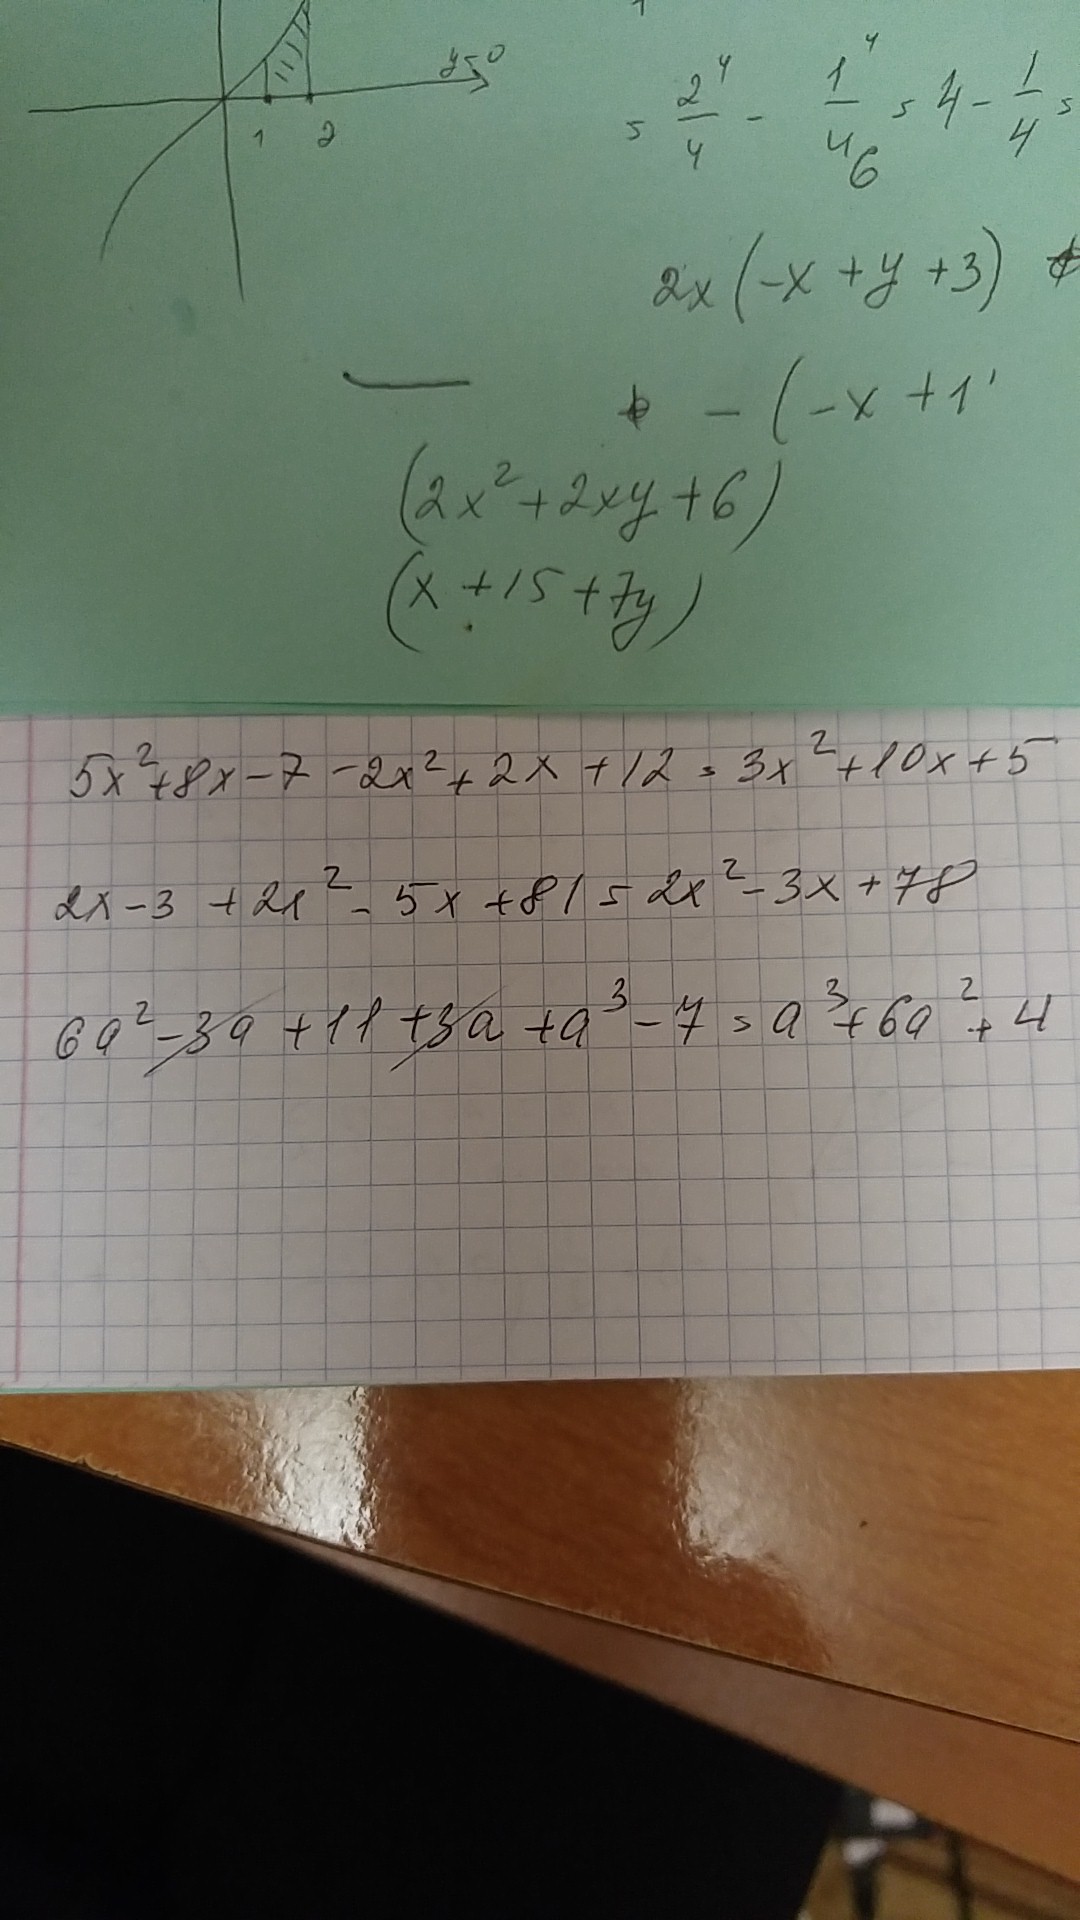 y=0
1 2
= 2⁴/4 - 1⁴/4 = 4 - 1/4 =
6
2x(-x+y+3)
- (-x+1
(2x²+2xy+6)
(x+15+7y)
5x²+8x-7-2x²+2x+12=3x²+10x+5
2x-3+2x²-5x+81=2x²-3x+78
6a²-3a+11+3a+a³-7=a³+6a²+4